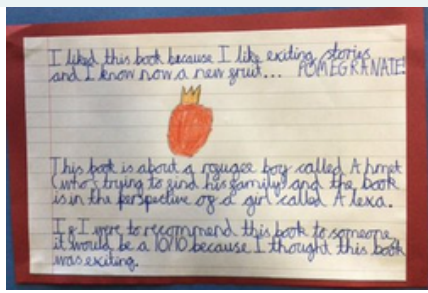 I liked this book because I like exiting stories
and I know now a new fruit... POMEGRANATE!
This book is about a refugee boy called Ahmet
(who's trying to find his family) and the book
is in the perspective of a girl called Alexa.
If I were to recommend this book to someone,
it would be a 10/10 because I thought this book
was exiting.